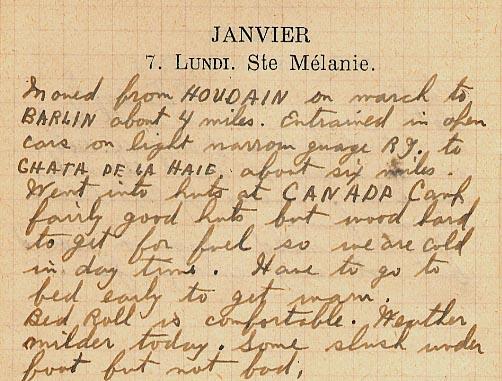 JANVIER
7. LUNDI. Ste Mélanie.
Moved from HOUDAIN on march to
BARLIN about 4 miles. Entrained in open
cars on light narrow guage RY. to
GHATA DE LA HAIE, about six miles.
Went into huts at CANADA Camp
fairly good huts but wood hard
to get for fuel so we are cold
in day time. Have to go to
bed early to get warm.
Bed Roll is comfortable. Weather
milder today. Some slush under
foot but not bad.